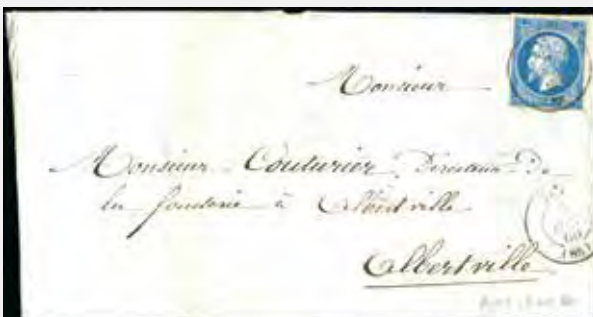 Monsieur
Monsieur Couturier, Directeur de
la fonderie à Albertville
Albertville